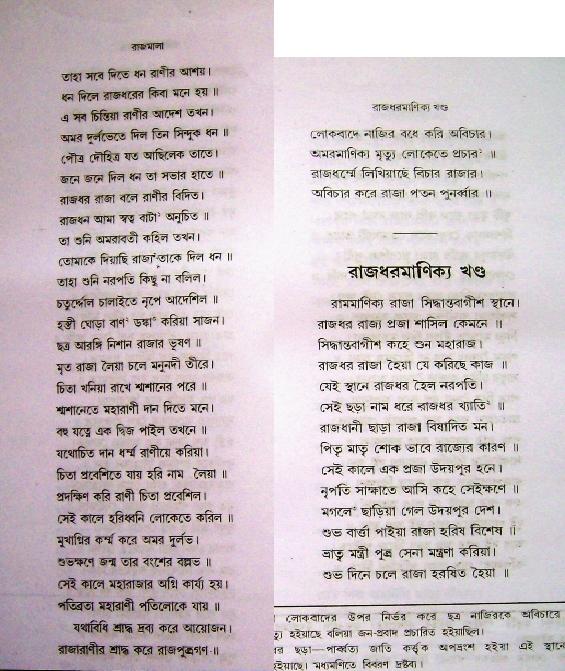 রাজমালা
তাহা সবে দিতে ধন রাণীর আশয়।
ধন দিলে রাজধরের কিবা মনে হয়॥
এ সব চিন্তিয়া রাণীর আদেশ তখন।
অমর দুর্লভেতে দিল তিন সিন্দুক ধন॥
পৌত্র দৌহিত্র যত আছিলেক তাতে।
জনে জনে দিল ধন তা সভার হাতে॥
রাজধর রাজা বলে রাণীর বিদিত।
রাজধন আমা স্বত্ব বাটা অনুচিত॥
তা শুনি অমরাবতী কহিল তখন।
তোমাকে দিয়াছি রাজ্য তাকে দিল ধন॥
তাহা শুনি নরপতি কিছু না বলিল।
চতুর্দ্দোল চালাইতে নৃপে আদেশিল॥
হস্তী ঘোড়া বাণ ডঙ্কা করিয়া সাজন।
ছত্র আরঙ্গি নিশান রাজার ভূষণ॥
মৃত রাজা লৈয়া চলে মনুনদী তীরে।
চিতা খনিয়া রাখে শ্মশানের পরে॥
শ্মশানেতে মহারাণী দান দিতে মনে।
বহু যত্নে এক দ্বিজ পাইল তখনে॥
যথোচিত দান ধর্ম্ম রাণীয়ে করিয়া।
চিতা প্রবেশিতে যায় হরি নাম লৈয়া॥
প্রদক্ষিণ করি রাণী চিতা প্রবেশিল।
সেই কালে হরিধ্বনি লোকেতে করিল॥
মুখাগ্নির কর্ম্ম করে অমর দুর্লভ।
শুভক্ষণে জন্ম তার বংশের বল্লভ॥
সেই কালে মহারাজার অগ্নি কার্য্য হয়।
পতিব্রতা মহারাণী পতিলোকে যায়॥
যথাবিধি শ্রাদ্ধ দ্রব্য করে আয়োজন।
রাজারাণীর শ্রাদ্ধ করে রাজপুত্রগণ॥
রাজধরমাণিক্য খণ্ড
লোকবাদে নাজির বধে করি অবিচার।
অমরমাণিক্য মৃত্যু লোকেতে প্রচার১॥
রাজধর্ম্মে লিখিয়াছে বিচার রাজার।
অবিচার করে রাজা পতন পুনর্ব্বার॥
রাজধরমাণিক্য খণ্ড
রামমাণিক্য রাজা সিদ্ধান্তবাগীশ স্থানে।
রাজধর রাজ্য প্রজা শাসিল কেমনে॥
সিদ্ধান্তবাগীশ কহে শুন মহারাজ।
রাজধর রাজা হৈয়া যে করিছে কাজ॥
যেই স্থানে রাজধর হৈল নরপতি।
সেই ছড়া নাম ধরে রাজধর খ্যাতি২॥
রাজধানী ছাড়া রাজা বিষাদিত মন।
পিতৃ মাতৃ শোক ভাবে রাজ্যের কারণ॥
সেই কালে এক প্রজা উদয়পুর হনে।
নৃপতি সাক্ষাতে আসি কহে সেইক্ষণে॥
মগলে৩ ছাড়িয়া গেল উদয়পুর দেশ।
শুভ বার্ত্তা পাইয়া রাজা হরিষ বিশেষ॥
ভ্রাতৃ মন্ত্রী পুত্র সেনা মন্ত্রণা করিয়া।
শুভ দিনে চলে রাজা হরষিত হৈয়া॥
লোকবাদের উপর নির্ভর করে ছত্র নাজিরকে অবিচারে
হইয়াছে বলিয়া জন-প্রবাদ প্রচারিত হইয়াছিল।
ছড়া—পার্ব্বত্য জাতি কর্ত্তৃক অপভ্রংশ হইয়া এই স্থানে
মধ্যমণিতে বিবরণ দ্রষ্টব্য।